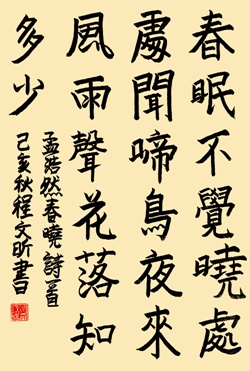 春眠不覺曉處
處聞啼鳥夜來
風雨聲花落知
多少
孟浩然春曉詩一首
己亥秋程文昕書